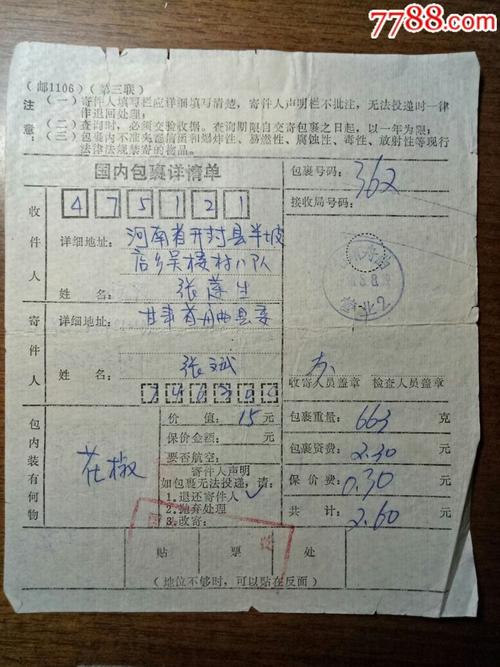 7788.com
中国收藏热线
(邮1106)(第三联)
注意:
(一)寄件人填写栏应详细填写清楚,寄件人声明栏不批注,无法投递时一律
作退回处理;
(二)查询时,必须交验收据。查询期限自交寄包裹之日起,以一年为限;
(三)包裹内不准夹寄信函和爆炸性、易燃性、腐蚀性、毒性、放射性等现行
法律法规禁寄的物品。
国内包裹详情单
包裹号码: 362
接收局号码:
收件人
475121
详细地址: 河南省开封县半坡
店乡吴楼村八队
姓名: 张莲生
寄件人
详细地址: 甘肃省舟曲县委
姓名: 张斌
营业2
收寄人员盖章 检查人员盖章
包内装有何物
花椒
价值: 15元
保价金额: 元
要否航空:
寄件人声明
如包裹无法投递,请:
1.退还寄件人 ✓
2.抛弃处理
3.改寄:
包裹重量: 663 克
包裹资费: 2.30 元
保价费: 0.30 元
共计: 2.60 元
贴 票 处
(地位不够时,可以贴在反面)